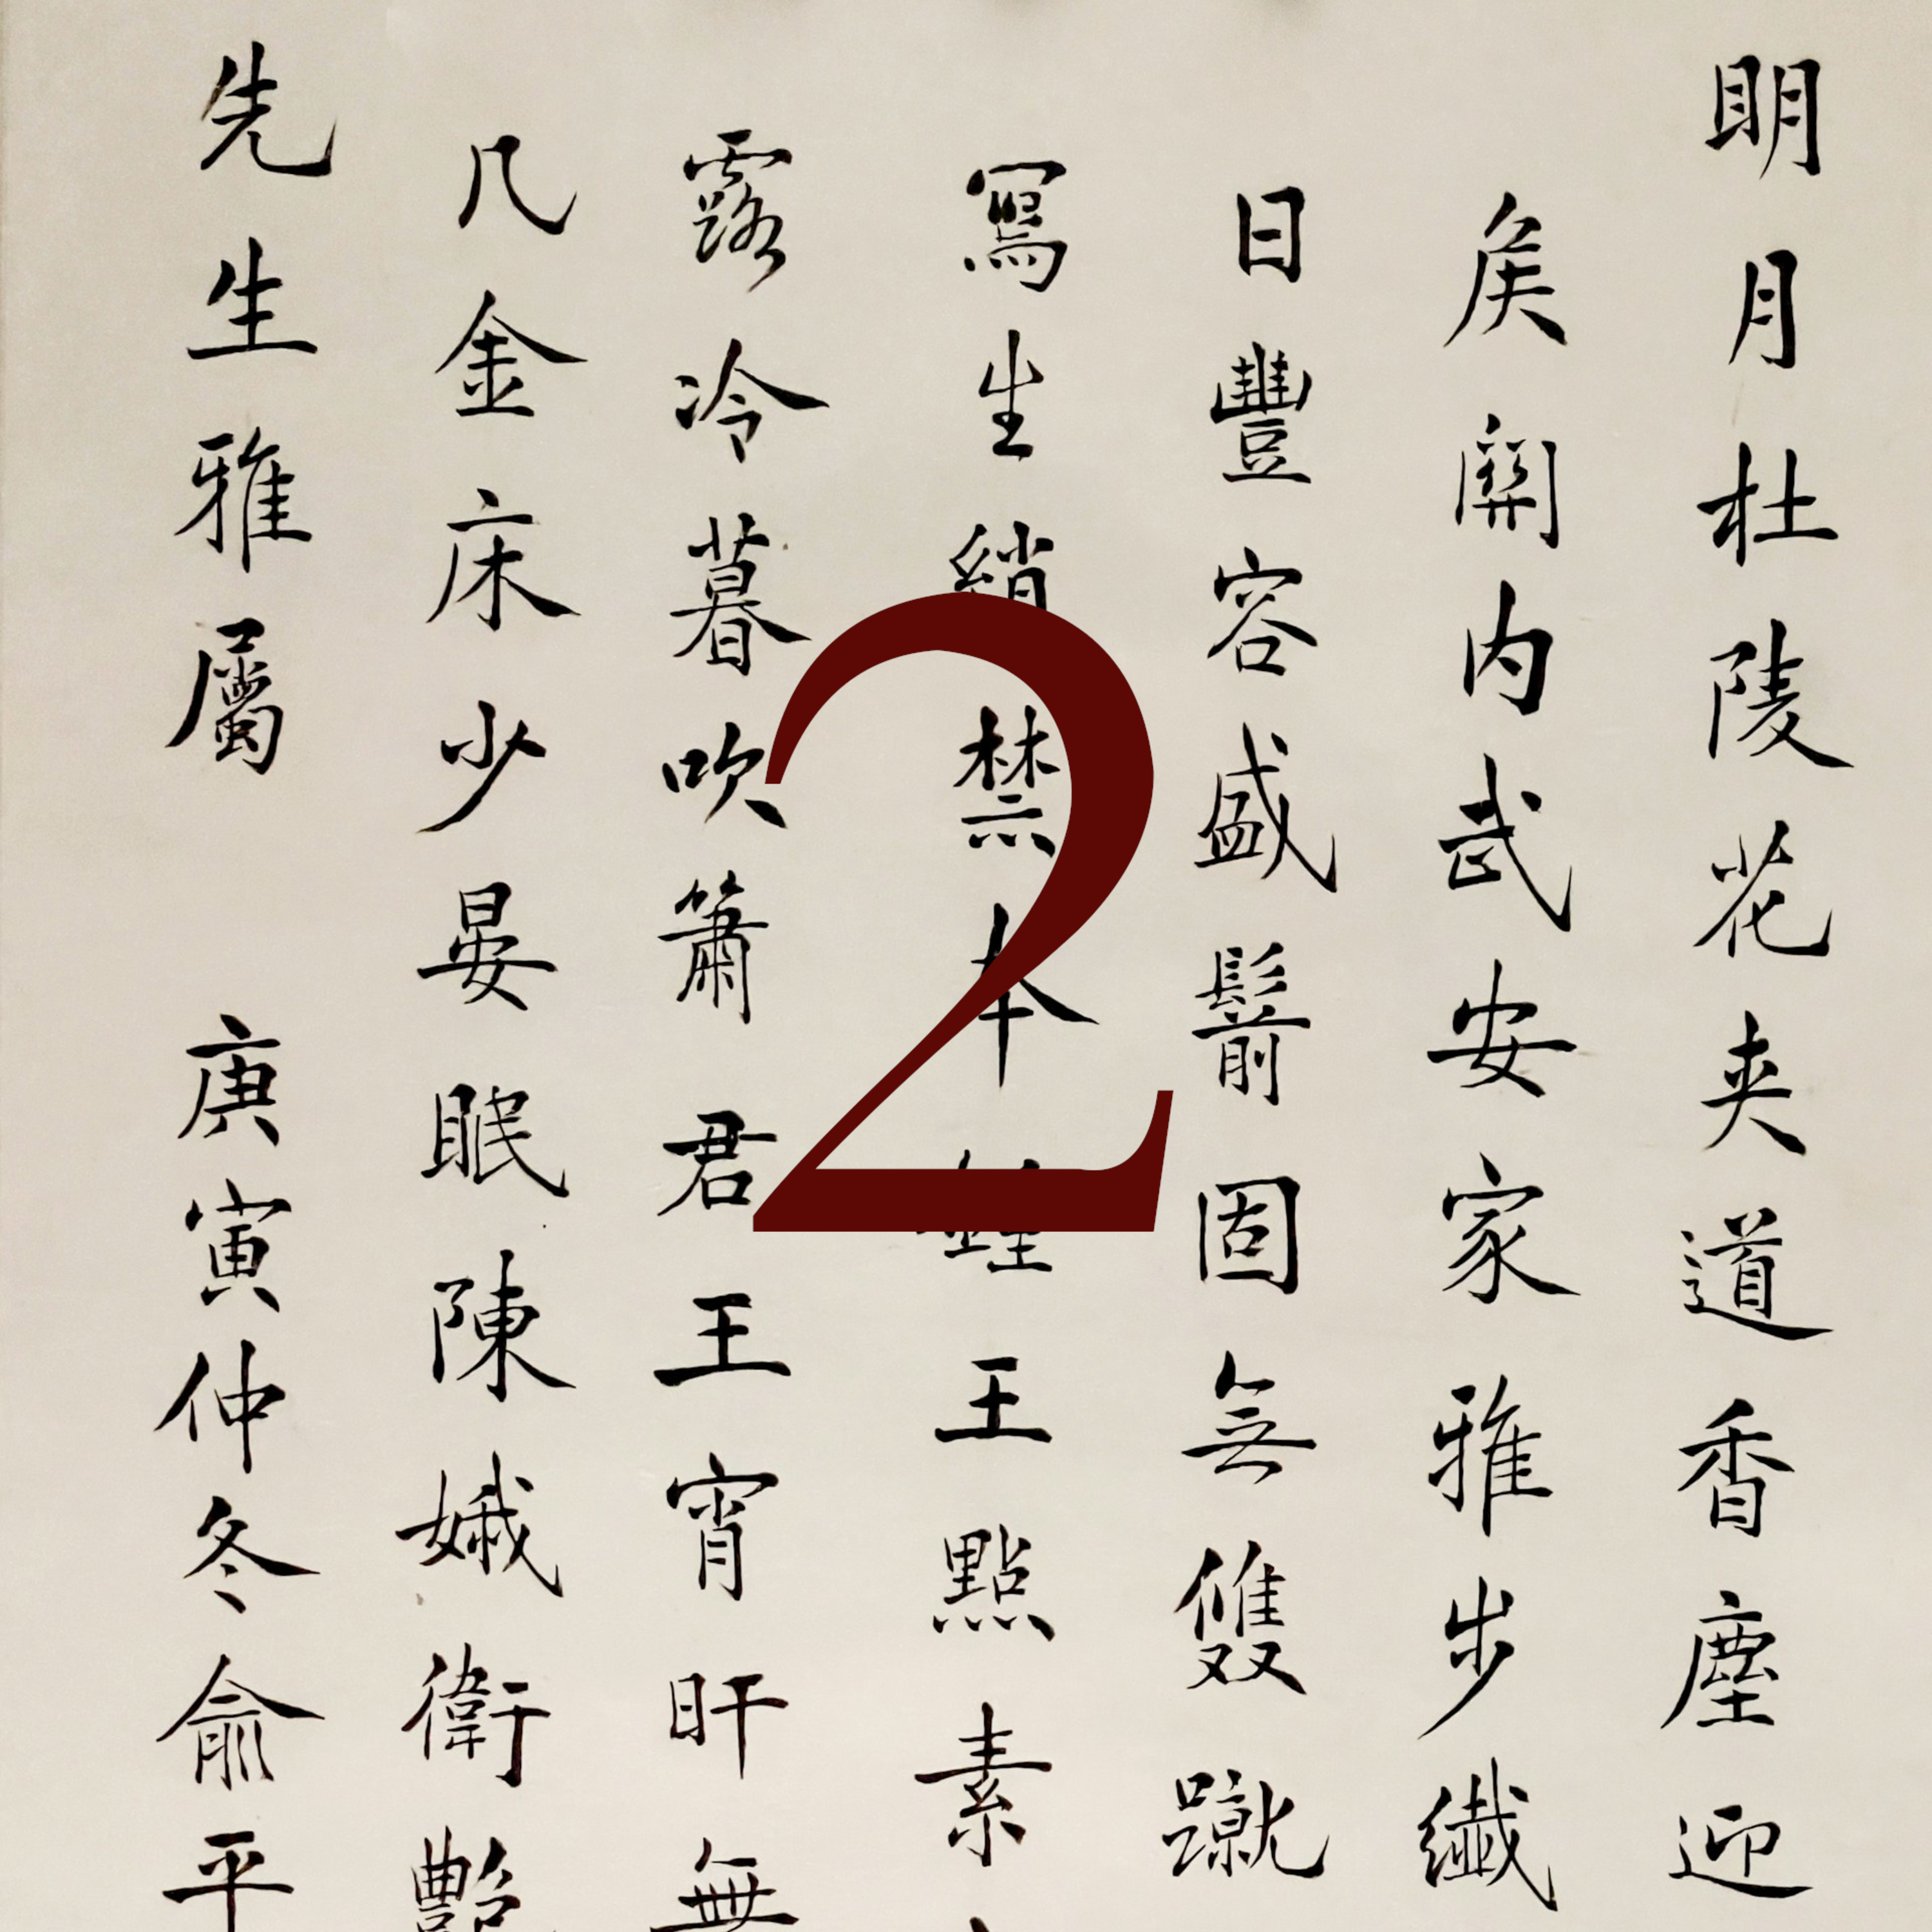 明月杜陵花夾道香塵迎
矦關内武安家雅步纖
日豐容盛鬋固無雙蹴
寫生綃禁本王點素
露冷暮吹簫君王宵旰無
几金床少晏眠陳娥衛
先生雅屬 庚寅仲冬俞平
2